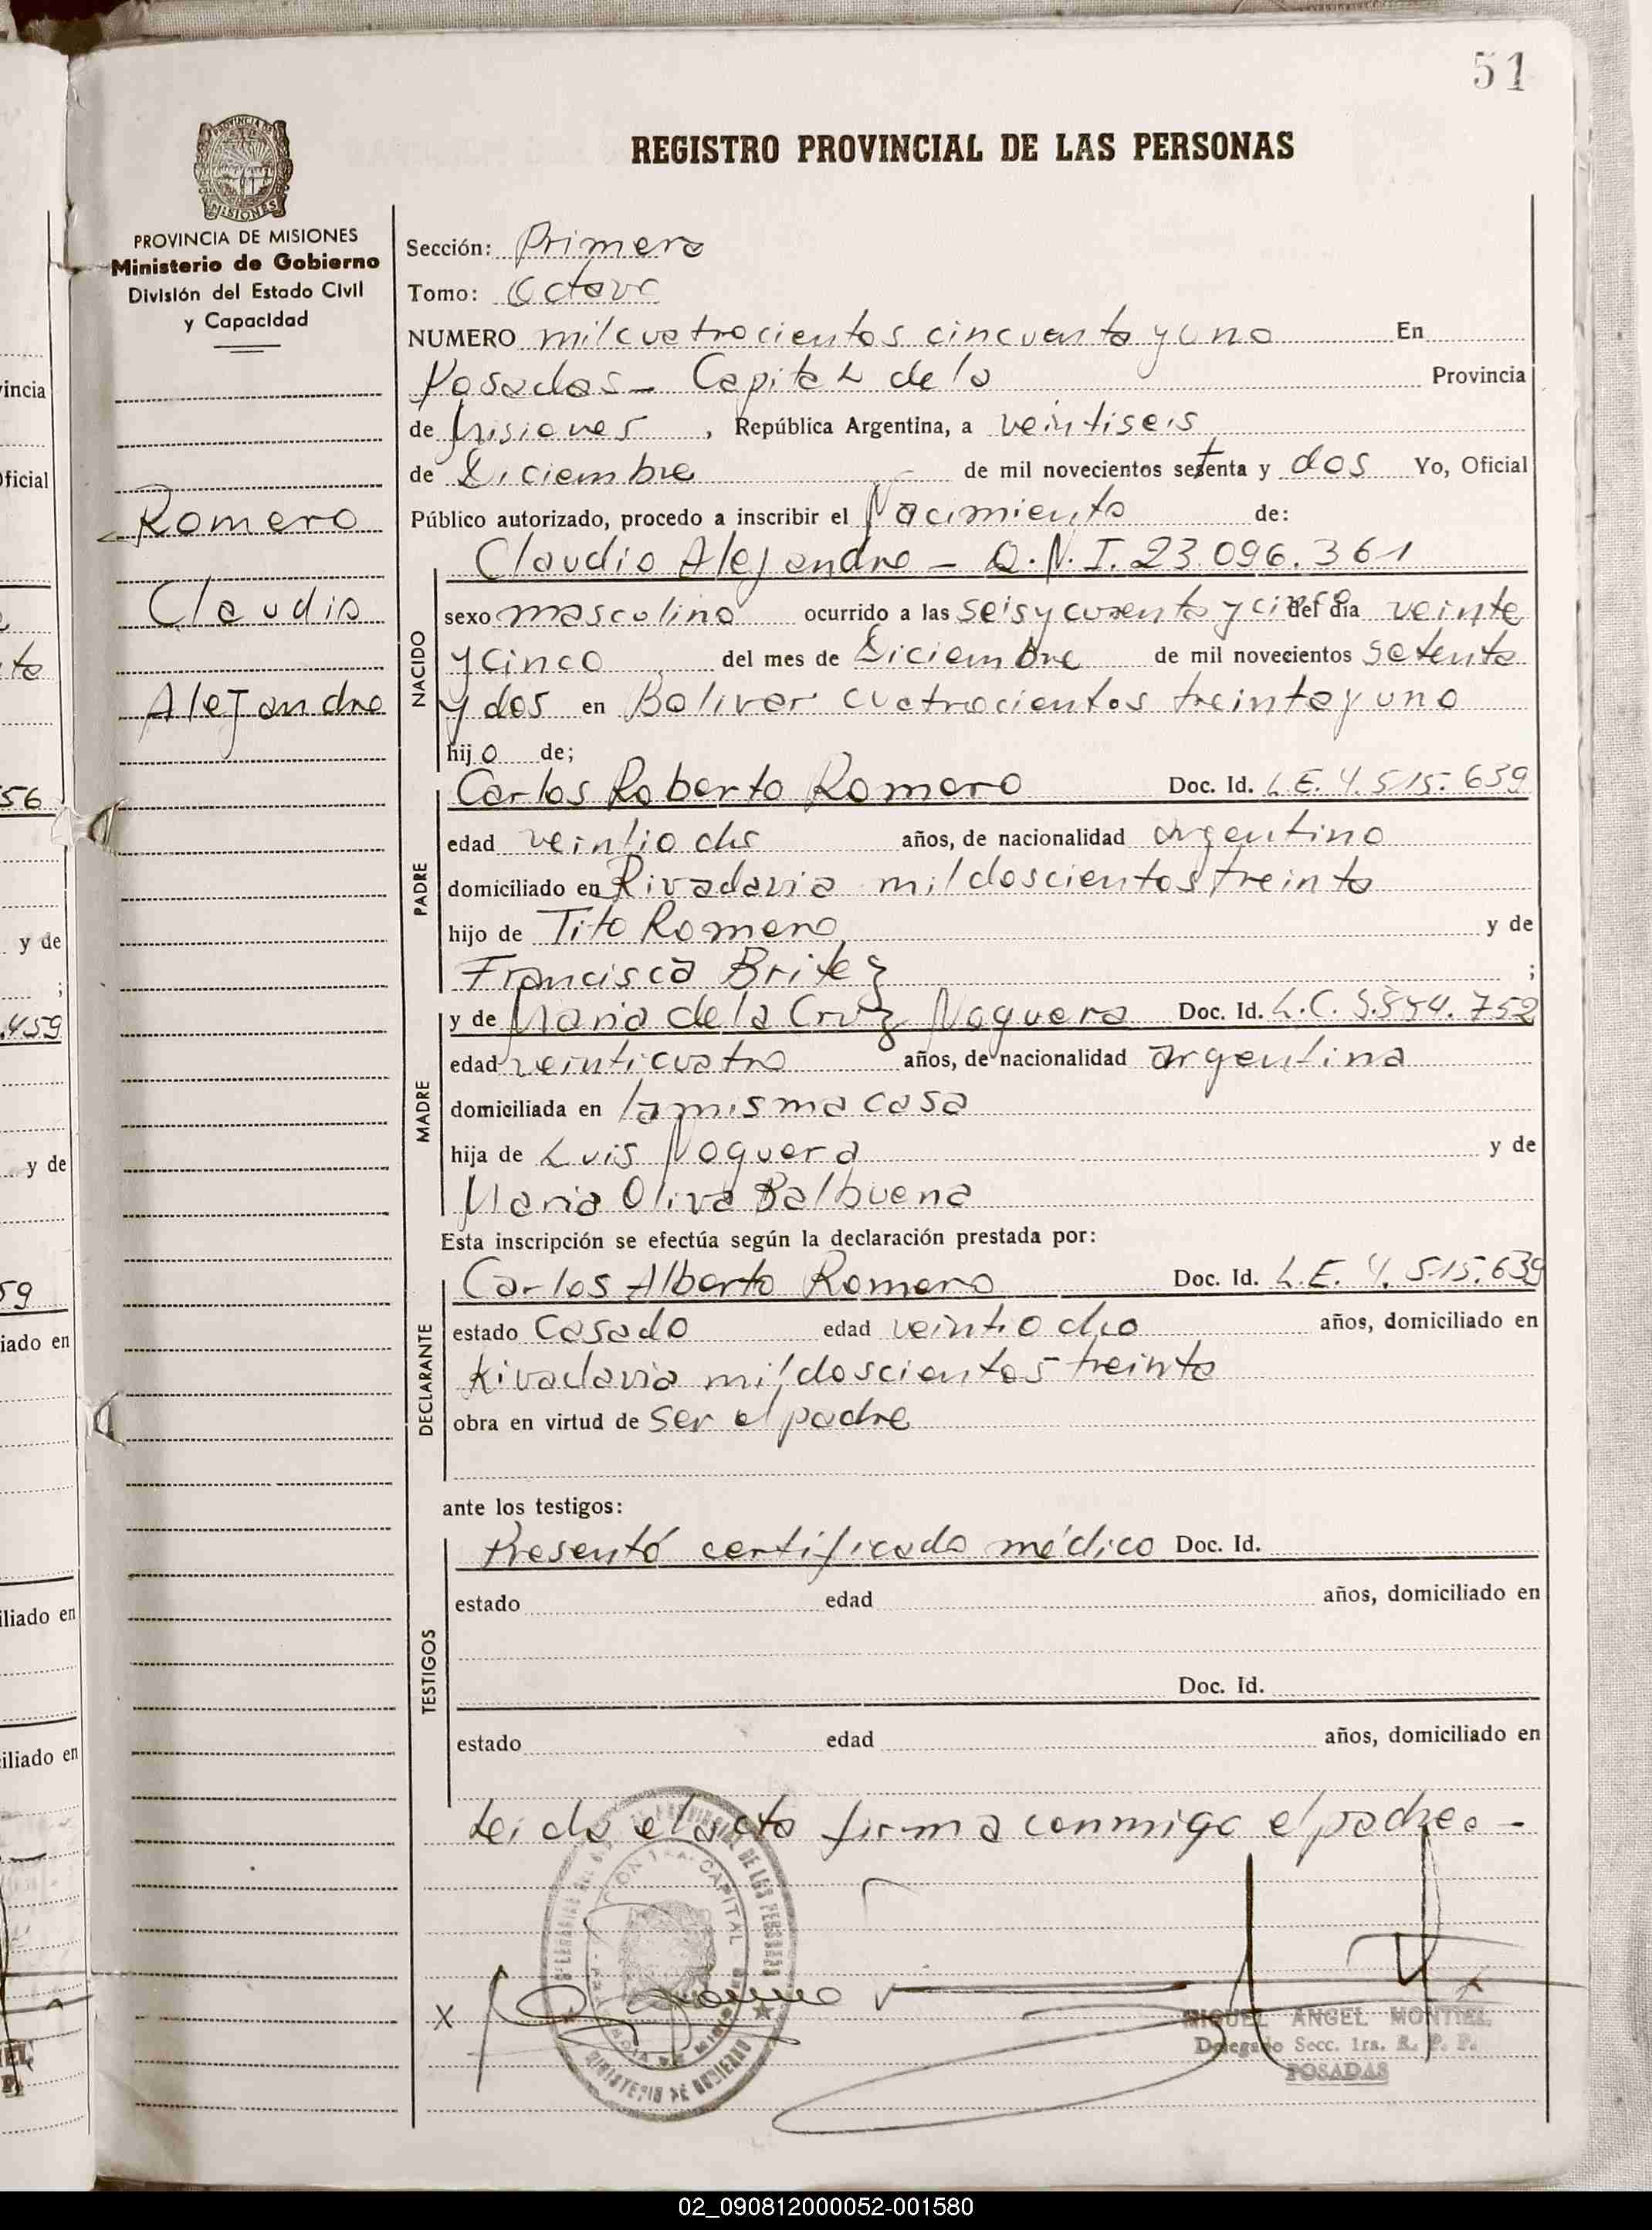 51
REGISTRO PROVINCIAL DE LAS PERSONAS
PROVINCIA DE MISIONES
Ministerio de Gobierno
División del Estado Civil
y Capacidad
Romero
Claudio
Alejandro
Sección: Primera
Tomo: Octavo
NUMERO mil cuatrocientos cincuenta y uno En
Posadas - Capital de la Provincia
de Misiones, República Argentina, a veintiseis
de Diciembre de mil novecientos setenta y dos Yo, Oficial
Público autorizado, procedo a inscribir el Nacimiento de:
Claudio Alejandro - D.N.I. 23.096.361
NACIDO
sexo masculino ocurrido a las seis y cuarenta y cinco del día veinte
y cinco del mes de Diciembre de mil novecientos setenta
y dos en Bolivar cuatrocientos treinta y uno
hijo de;
PADRE
Carlos Roberto Romero Doc. Id. L.E. 4.515.639
edad veintiocho años, de nacionalidad argentino
domiciliado en Rivadavia mil doscientos treinta
hijo de Tito Romero y de
Francisca Britez ;
MADRE
y de Maria de la Cruz Noguera Doc. Id. L.C. 5.854.752
edad veinticuatro años, de nacionalidad argentina
domiciliada en la misma casa
hija de Luis Noguera y de
Maria Oliva Balbuena
Esta inscripción se efectúa según la declaración prestada por:
DECLARANTE
Carlos Alberto Romero Doc. Id. L.E. 4.515.639
estado casado edad veintiocho años, domiciliado en
Rivadavia mil doscientos treinta
obra en virtud de ser el padre
ante los testigos:
TESTIGOS
Presentó certificado médico Doc. Id.
estado edad años, domiciliado en
Doc. Id.
estado edad años, domiciliado en
Leida el acta firma conmigo el padre. -
X
MIGUEL ANGEL MONTIEL
Delegado Secc. 1ra. R. P. P.
POSADAS
02_090812000052-001580